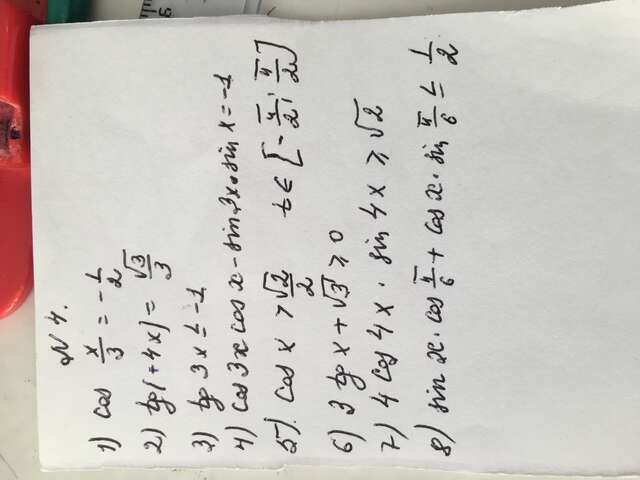 N 4.
1) cos x/3 = -1/2
2) tg(-4x) = √3/3
3) tg 3x ≤ -1
4) cos 3x cos x - sin 3x • sin x = -1
5) cos x > √2/2 t ∈ [-π/2; π/2]
6) 3 tg x + √3 ≥ 0
7) 4 cos 4x · sin 4x ≥ √2
8) sin x · cos π/6 + cos x · sin π/6 ≤ 1/2